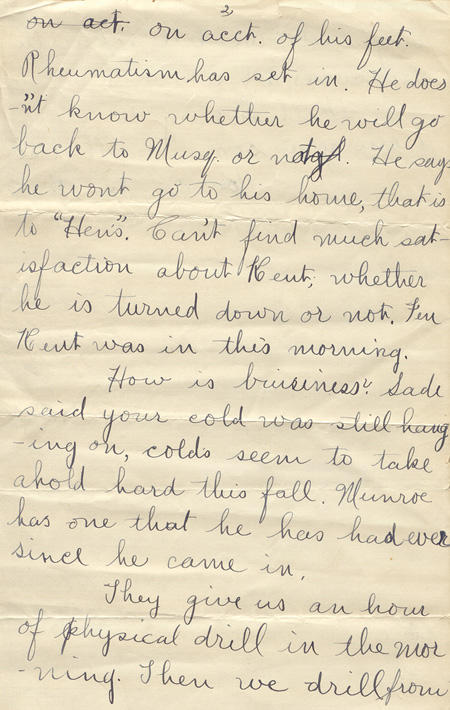 2
on act. on acct. of his feet.
Rheumatism has set in. He does
-n't know whether he will go
back to Musq. or not. He says
he wont go to his home, that is
to "Hen's". Can't find much sat-
isfaction about Kent, whether
he is turned down or not. Fen
Kent was in this morning.
How is buisiness? Sade
said your cold was still hang
-ing on, colds seem to take
ahold hard this fall. Munroe
has one that he has had ever
since he came in.
They give us an hour
of physical drill in the mor
-ning. Then we drill from